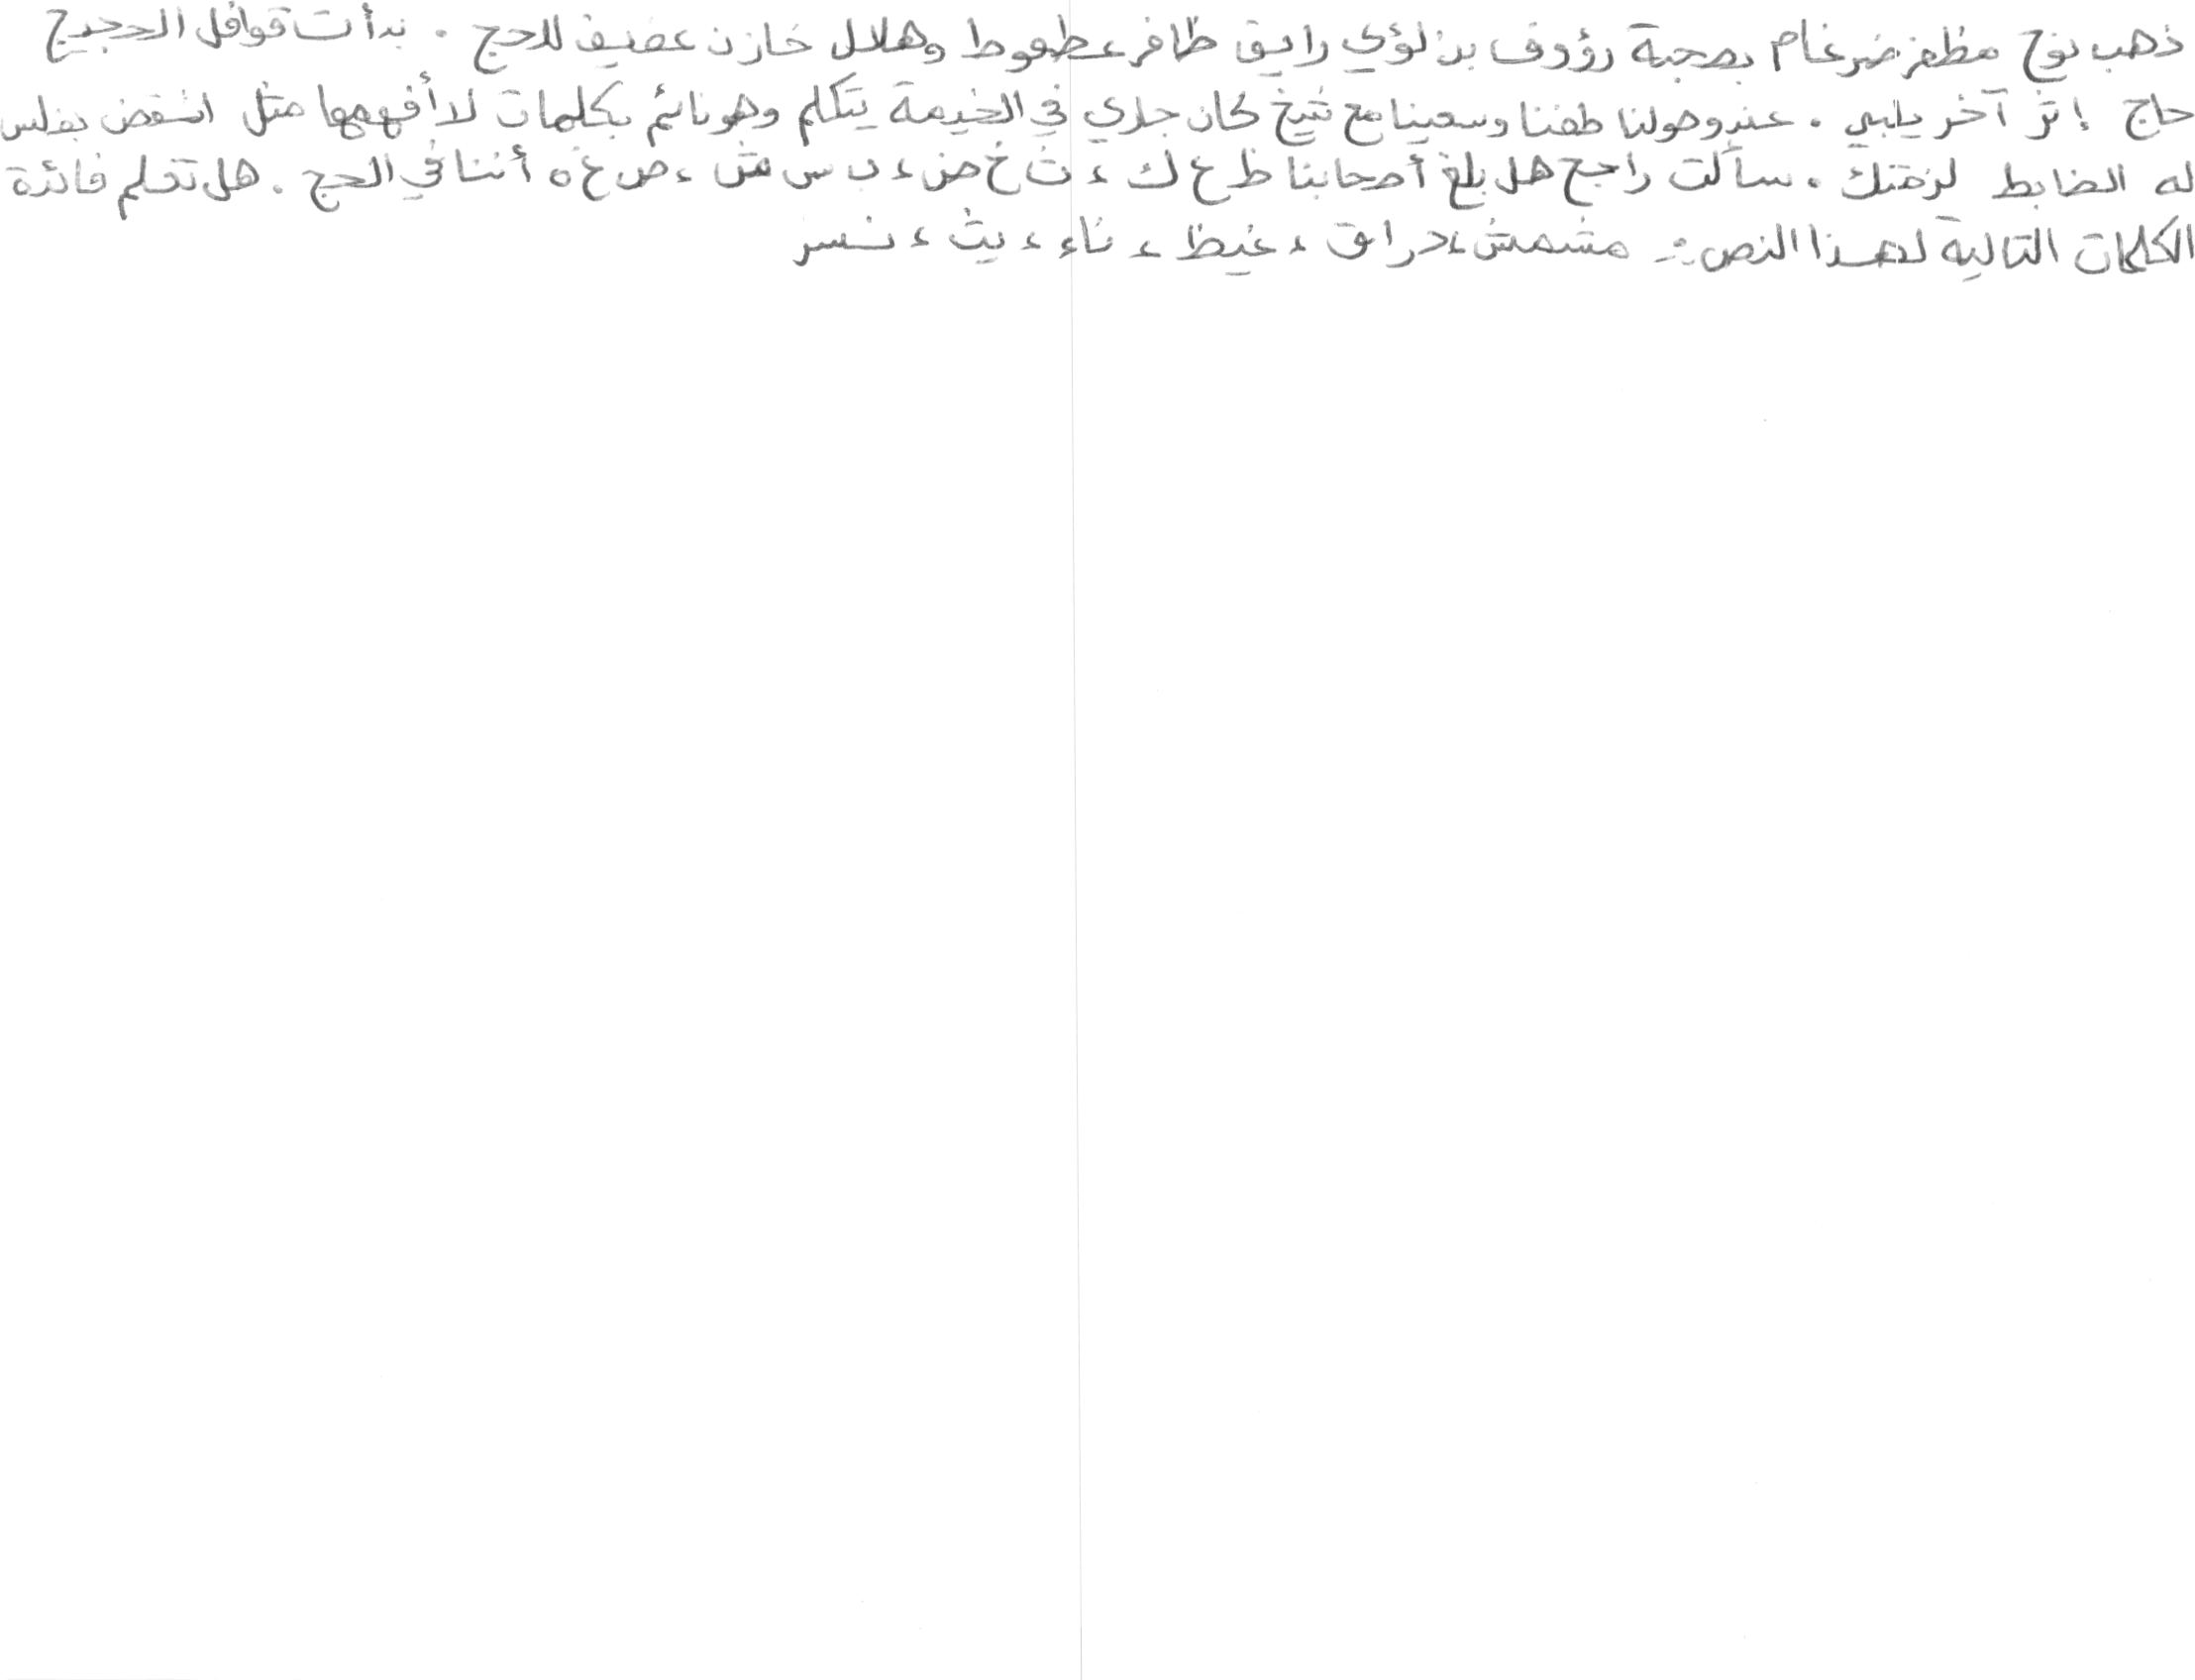 ذهب نوح مظفر ضرغام بصحبة رؤوف بن لؤي رايق ظافر عطعوط وهلال خازن عفيف للحج . بدأت قوافل الحجيج
حاج إثر آخر يلبي . عند وصولنا طفنا وسعينا مع شيخ كان جاري في الخيمة يتكلم وهو نائم بكلمات لا أفهمها مثل انشقض بغلس
له الضابط لزمتك . سألت راجح هل بلغ أصحابنا ظ ع ك ، ث خ ض ، ب س ش ، ص غ ه أننا في الحج . هل تعلم فائدة
الكلمات التالية لهذا النص :- مشمش ، دراق ، غيظ ، ناء ، يث ، نسر